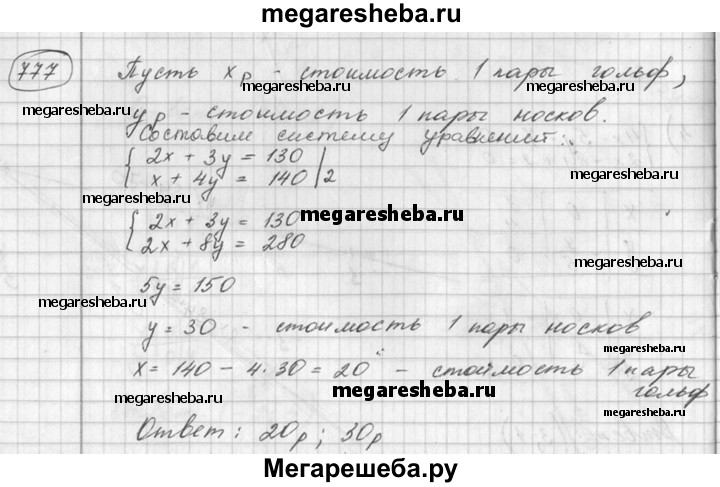 megaresheba.ru
777 Пусть x р - стоимость 1 пары гольф,
megaresheba.ru
y р - стоимость 1 пары носков.
megaresheba.ru
Составим систему уравнений:
2x + 3y = 130
x + 4y = 140 | 2
megaresheba.ru
megaresheba.ru
2x + 3y = 130
2x + 8y = 280
megaresheba.ru
megaresheba.ru
5y = 150
megaresheba.ru
y = 30 - стоимость 1 пары носков
megaresheba.ru
x = 140 - 4 · 30 = 20 - стоимость 1 пары
гольф
megaresheba.ru
megaresheba.ru
megaresheba.ru
Ответ: 20р; 30р
Мегарешеба.ру